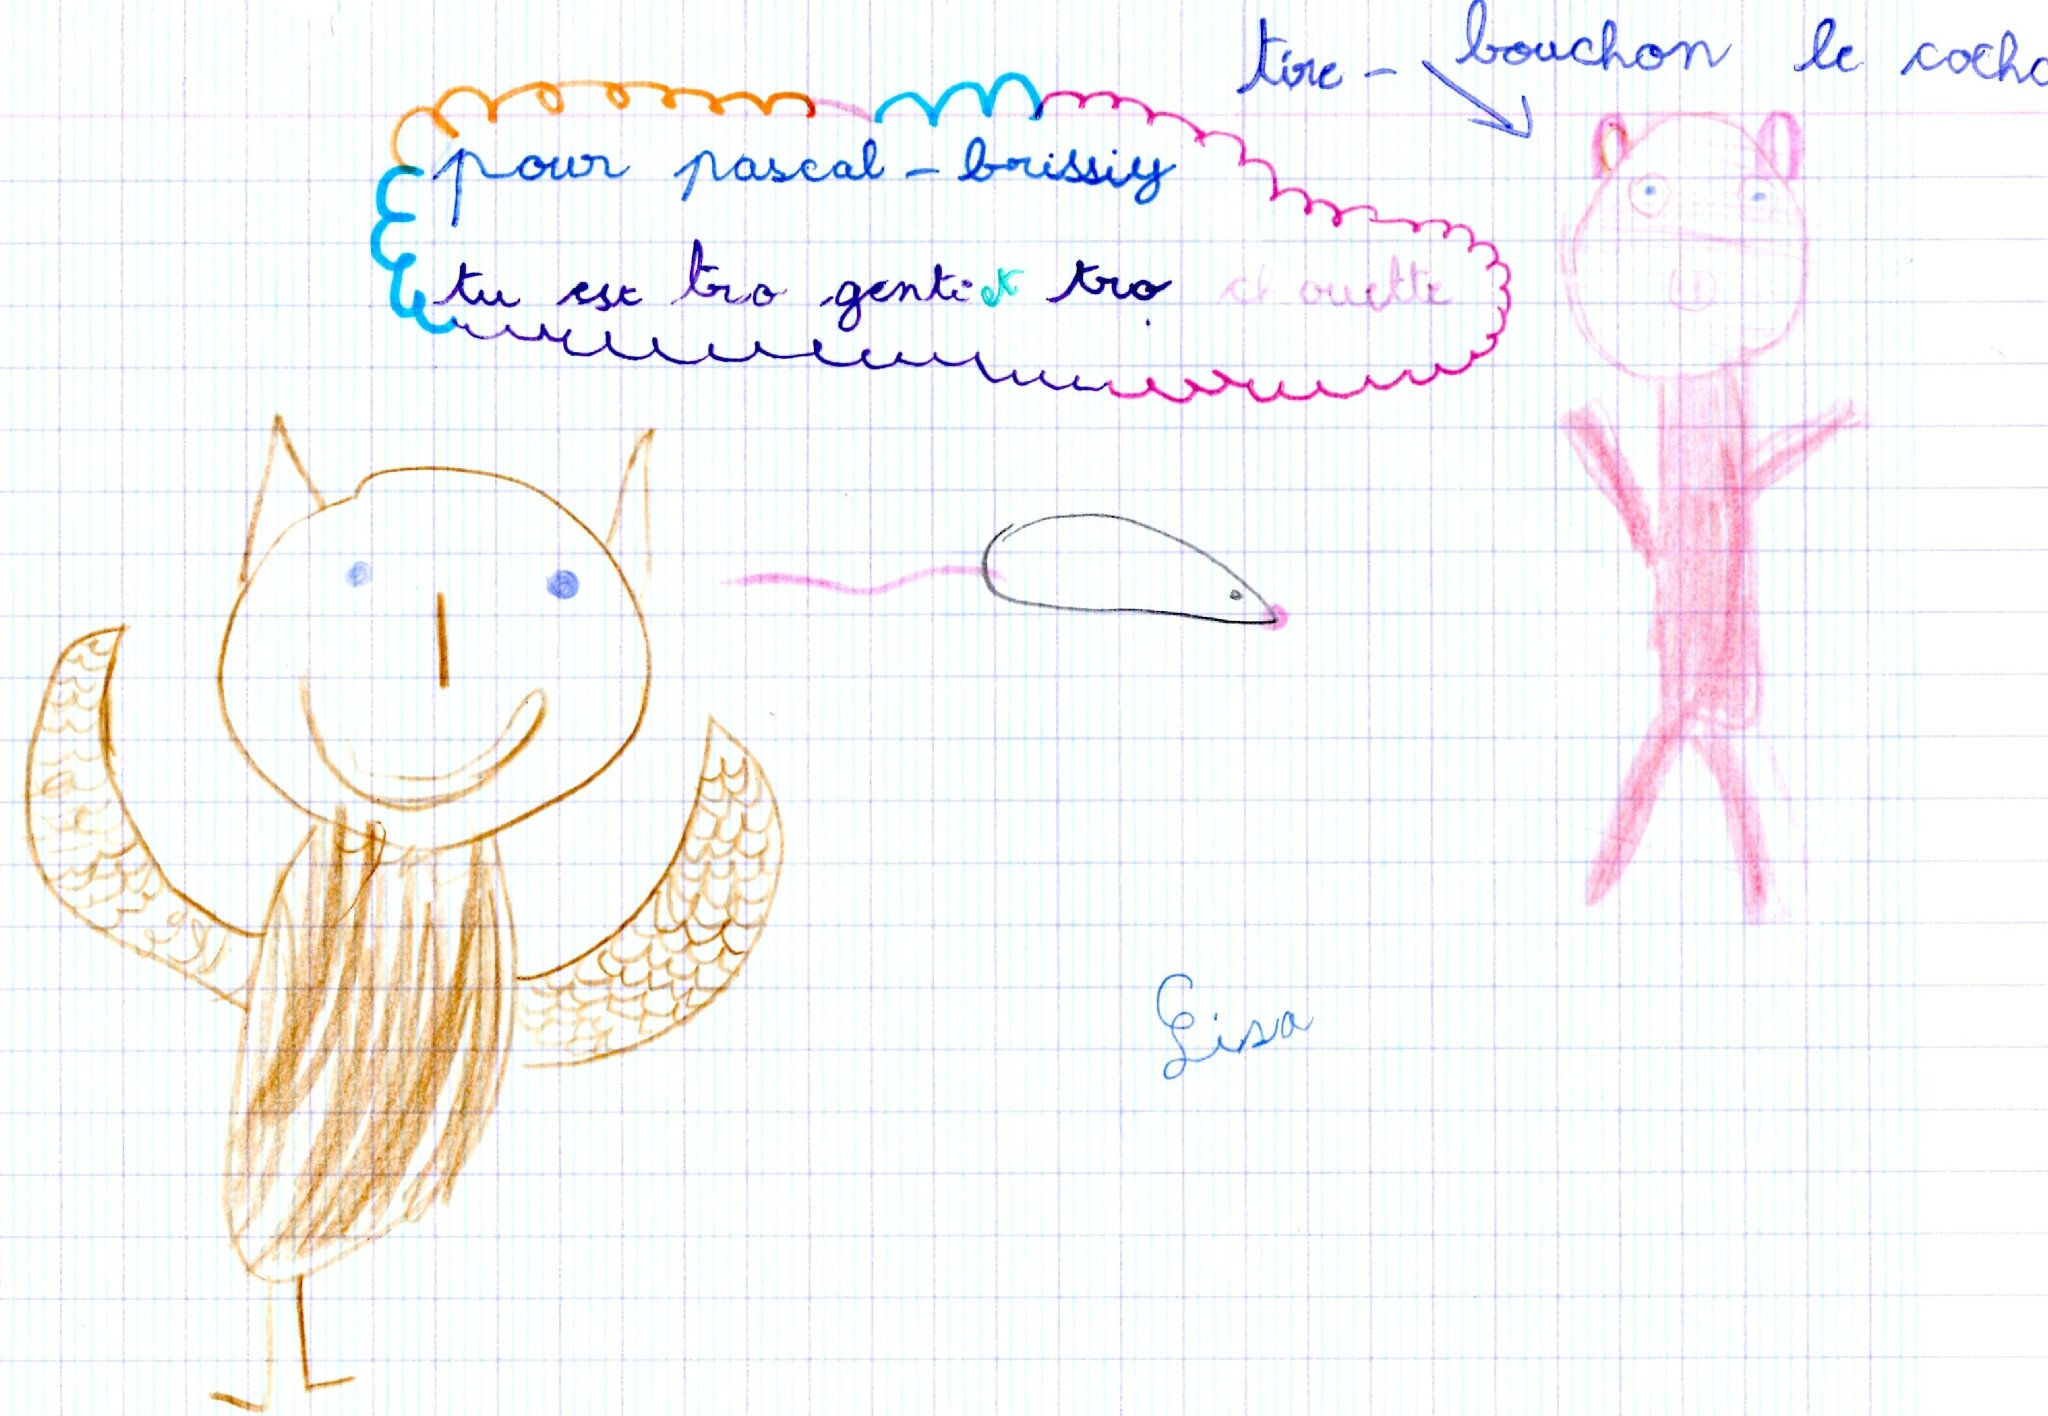 tire - bouchon le cocho
pour pascal - brissiy
tu est tro genti et tro chouette
Lisa